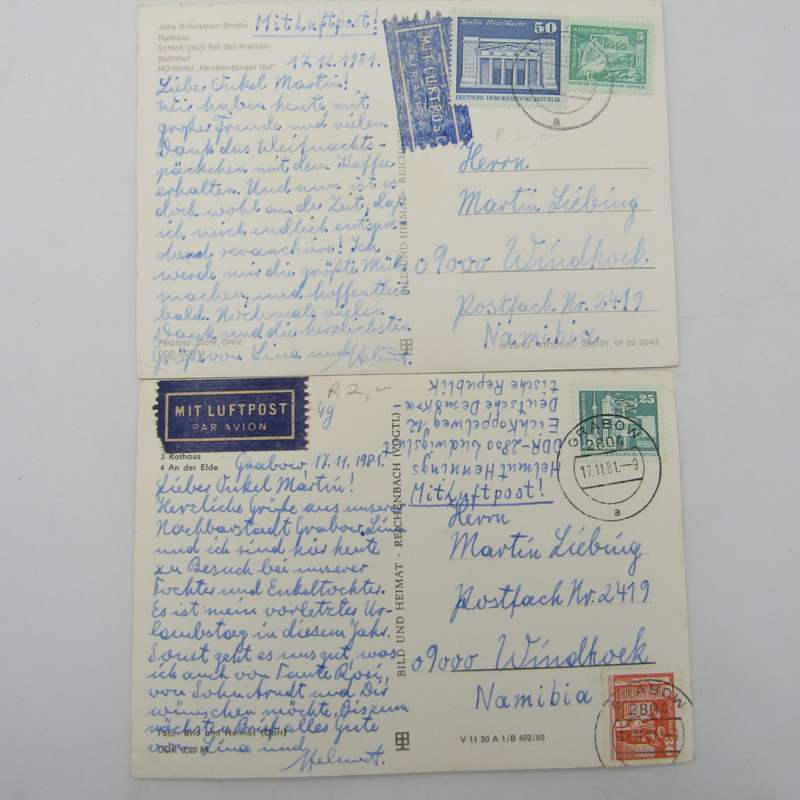 John-Brinckman-Straße
Rathaus
Schloß (jetzt Rat des Kreises)
Bahnhof
HO-Hotel „Mecklenburger Hof"
Mit Luftpost!
17.12.1981.
Lieber Onkel Martin!
Wir haben heute mit
großer Freude und vielem
Dank das Weihnachts-
päckchen mit dem Kaffee
erhalten. Und nun ist es
doch wohl an der Zeit, daß
ich mich endlich entspre
chend revanchiere! Ich
werde mir die größte Mühe
machen, und hoffentlich
bald. Nochmals vielen
Dank und die herzlichsten
Grüße von Lina und Helmut.
Farbfoto: Stöhr, Greiz
DDR M
BILD UND HEIMAT REICHENBACH
MIT LUFTPOST
PAR AVION
Berlin · Neue Wache 50
DEUTSCHE DEMOKRATISCHE REPUBLIK
5
DEUTSCHE DEMOKRATISCHE REPUBLIK
a
R 2,–
Herrn
Martin Liebing
09000 Windhoek
Postfach Nr. 2419
Namibia
01 02 0043
MIT LUFTPOST
PAR AVION
R 2,–
4g
3 Rathaus
4 An der Elde
Grabow, 17.11.1981.
Lieber Onkel Martin!
Herzliche Grüße aus unserer
Nachbarstadt Grabow. Lina
und ich sind hier heute
zu Besuch bei unserer
Tochter und Enkeltochter.
Es ist mein vorletzter Ur-
laubstag in diesem Jahr.
Sonst geht es uns gut, was
ich auch von Tante Rosi,
von Sohn Arndt und Dir
wünschen möchte. Bis zum
nächsten Brief alles Gute
von Lina und Helmut.
Foto: Bild und Heimat (Darr)
DDR 0,20 M
BILD UND HEIMAT · REICHENBACH (VOGTL)
Helmut Hennings
DDR-2800 Ludwigslust
Eichkoppelweg 12
Deutsche Demokra-
tische Republik
Mit Luftpost!
25
GRABOW
2804
17.11.81.–9
a
Herrn
Martin Liebing
Postfach Nr. 2419
09000 Windhoek
Namibia
GRABOW
2804
V 11 50 A 1/B 492/80